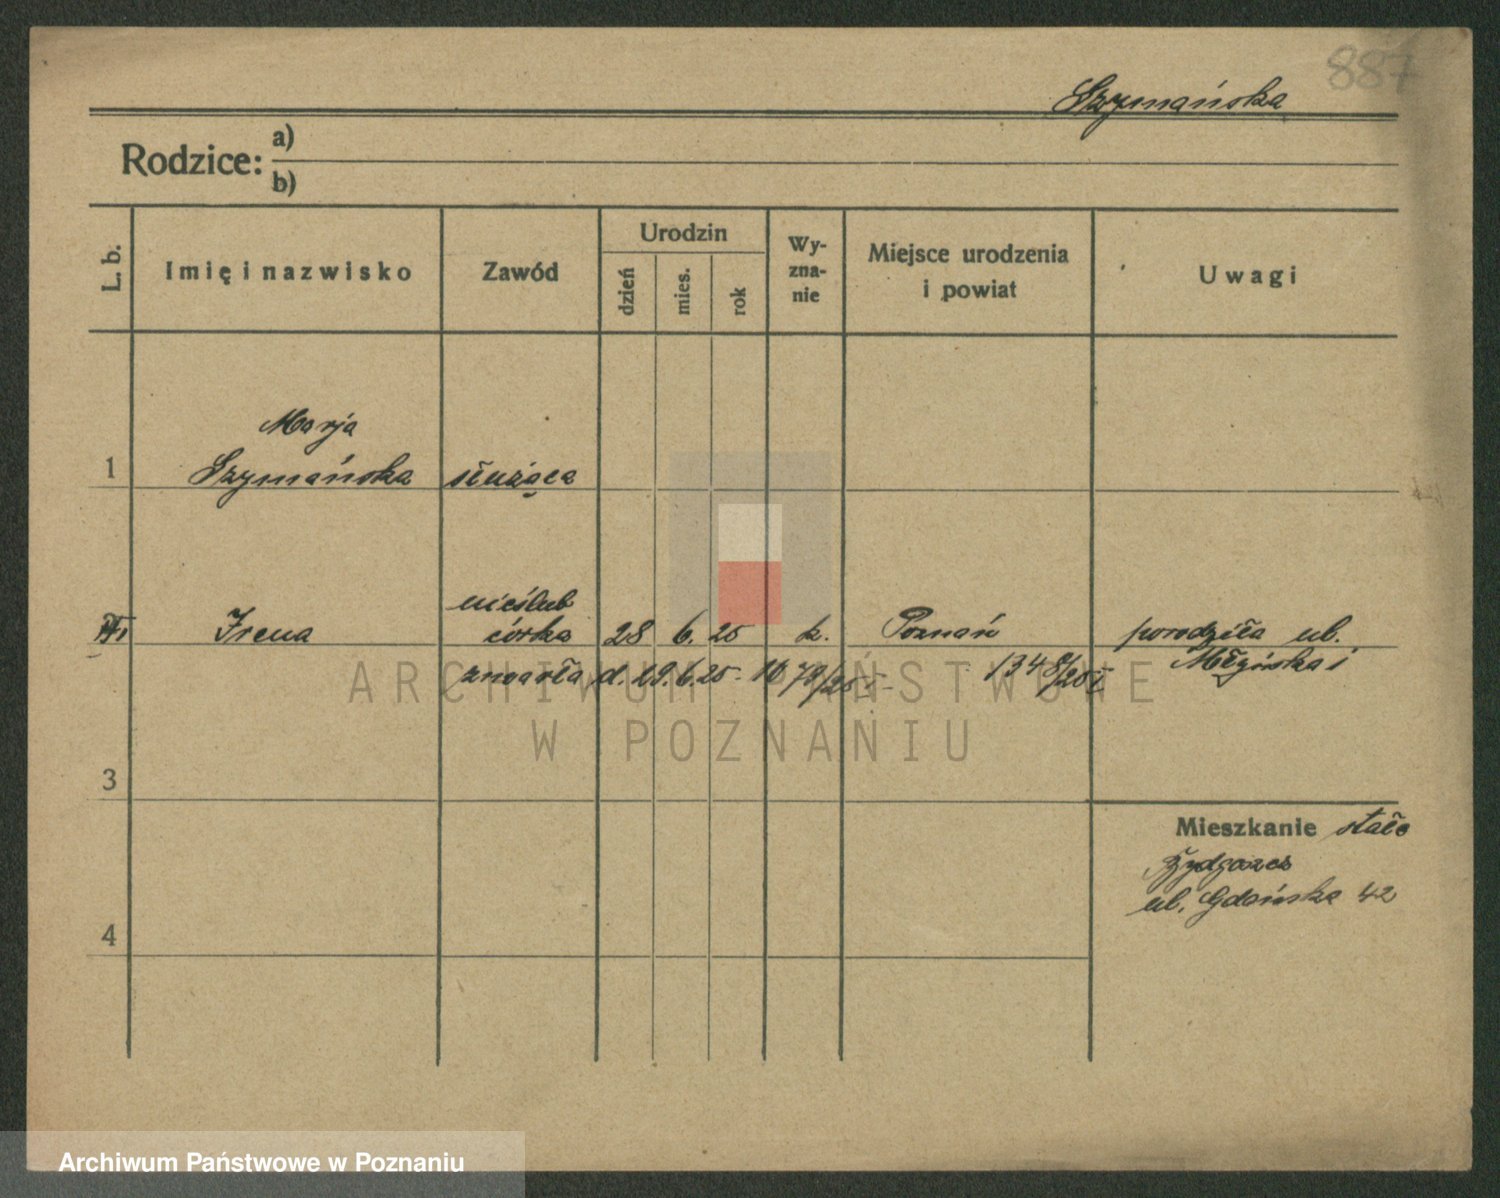 887
Szymańska
Rodzice: a)
b)
L. b.
Imię i nazwisko
Zawód
Urodzin
dzień
mies.
rok
Wy-
zna-
nie
Miejsce urodzenia
i powiat
Uwagi
Marja
1 Szymańska służąca
nieślub
Irena córka 28 6. 25 k. Poznań porodziła ul.
zmarła d. 29.6.25. 1348/25 I
ARCHIWUM PAŃSTWOWE
W POZNANIU
3
Mieszkanie stałe
Bydgoszcz
ul. Gdańska 42
4
Archiwum Państwowe w Poznaniu